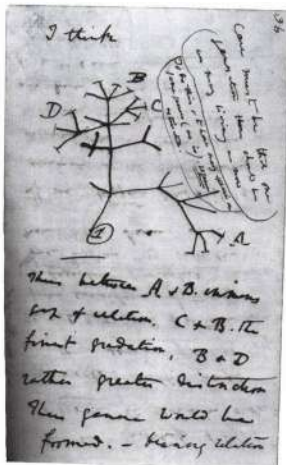 36
I think
B
C
D
A
1
Case must be that one
generation then should be
as many living as now
To do this & to have many species in
same genus (as is) requires
extinction
Thus between A & B. immens
gap of relation. C & B. the
finest gradation, B & D
rather greater distinction
Thus genera would be
formed. — bearing relation